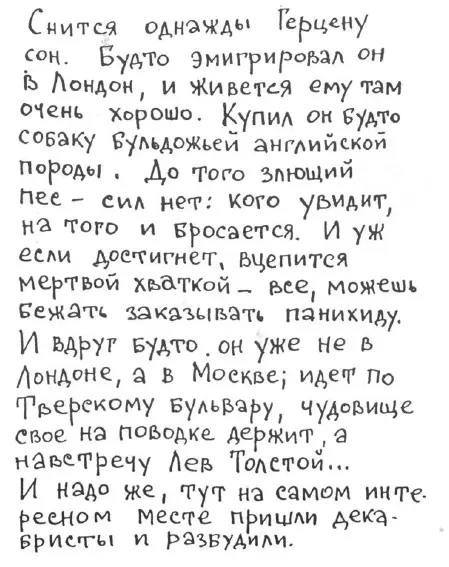 Снится однажды Герцену
сон. Будто эмигрировал он
в Лондон, и живется ему там
очень хорошо. Купил он будто
собаку бульдожьей английской
породы. До того злющий
пес – сил нет: кого увидит,
на того и бросается. И уж
если достигнет, вцепится
мертвой хваткой – все, можешь
бежать заказывать панихиду.
И вдруг будто он уже не в
Лондоне, а в Москве; идет по
Тверскому бульвару, чудовище
свое на поводке держит, а
навстречу Лев Толстой...
И надо же, тут на самом инте-
ресном месте пришли дека-
бристы и разбудили.